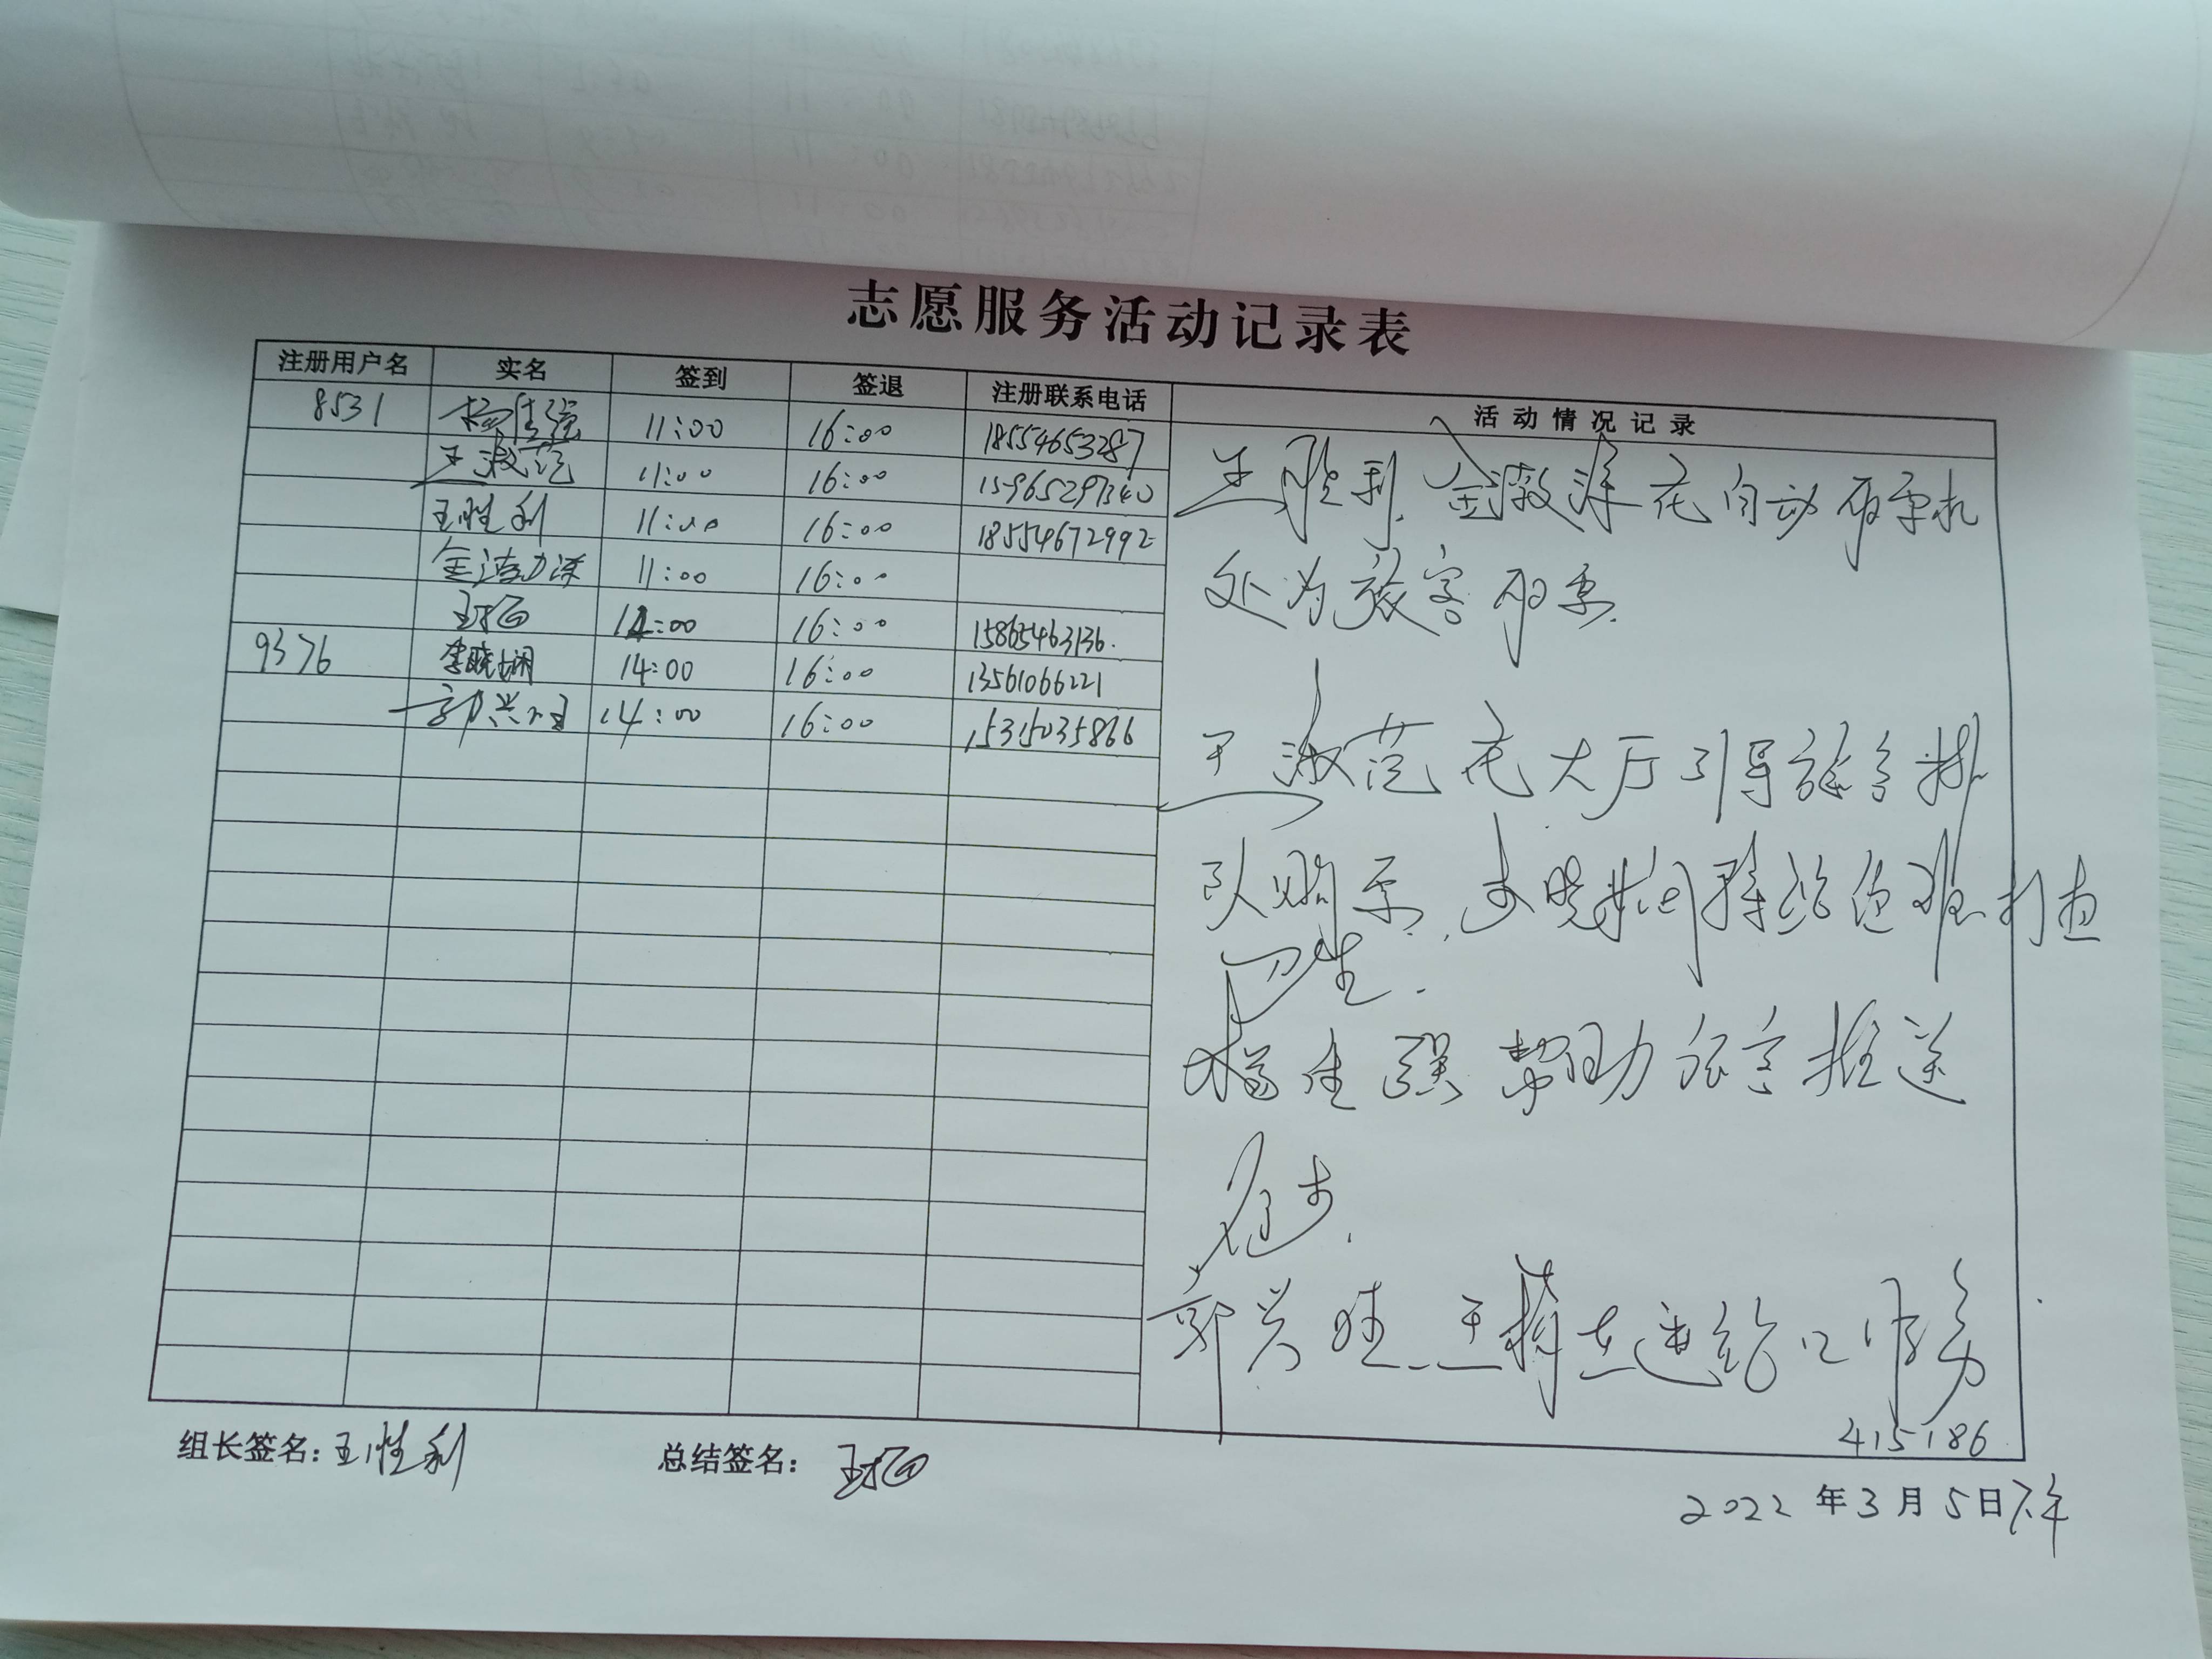 志愿服务活动记录表
注册用户名 实名 签到 签退 注册联系电话 活动情况记录
8531 杨佳强 11:00 16:00 18554653287
王淑范 11:00 16:00 15965297340
王胜利 11:00 16:00 18554672992
11:00 16:00
王 14:00 16:00 15865463136.
9376 李晓娴 14:00 16:00 13561066221
郭兴旺 14:00 16:00 15315035866
王胜利. 在自动取票机
处为旅客取票.
王淑范在大厅引导旅客排
队购票. 李晓娴 打扫
卫生.
杨佳强帮助旅客推送
郭兴旺 王 在进站口服务
415186
组长签名: 王胜利 总结签名: 王
2022年3月5日下午